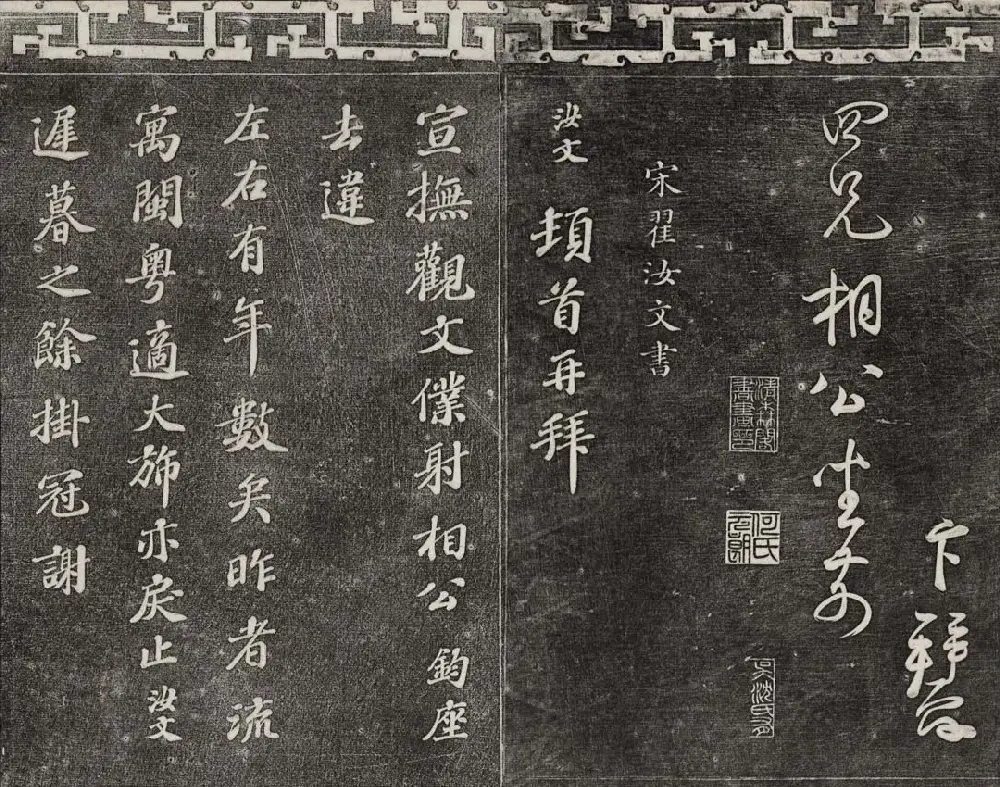 卞
四兄相公坐前
清森閣書畫印
何氏元朗
宋翟汝文書
汝文頓首再拜
宣撫觀文僕射相公鈞座
去違
左右有年數矣昨者流
寓閩粵適大旆亦戾止汝文
遲暮之餘掛冠謝